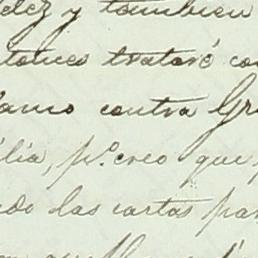 dez y tambien
tonces trataré con
amo contra Gr
lia, p.º creo que
do las cartas par